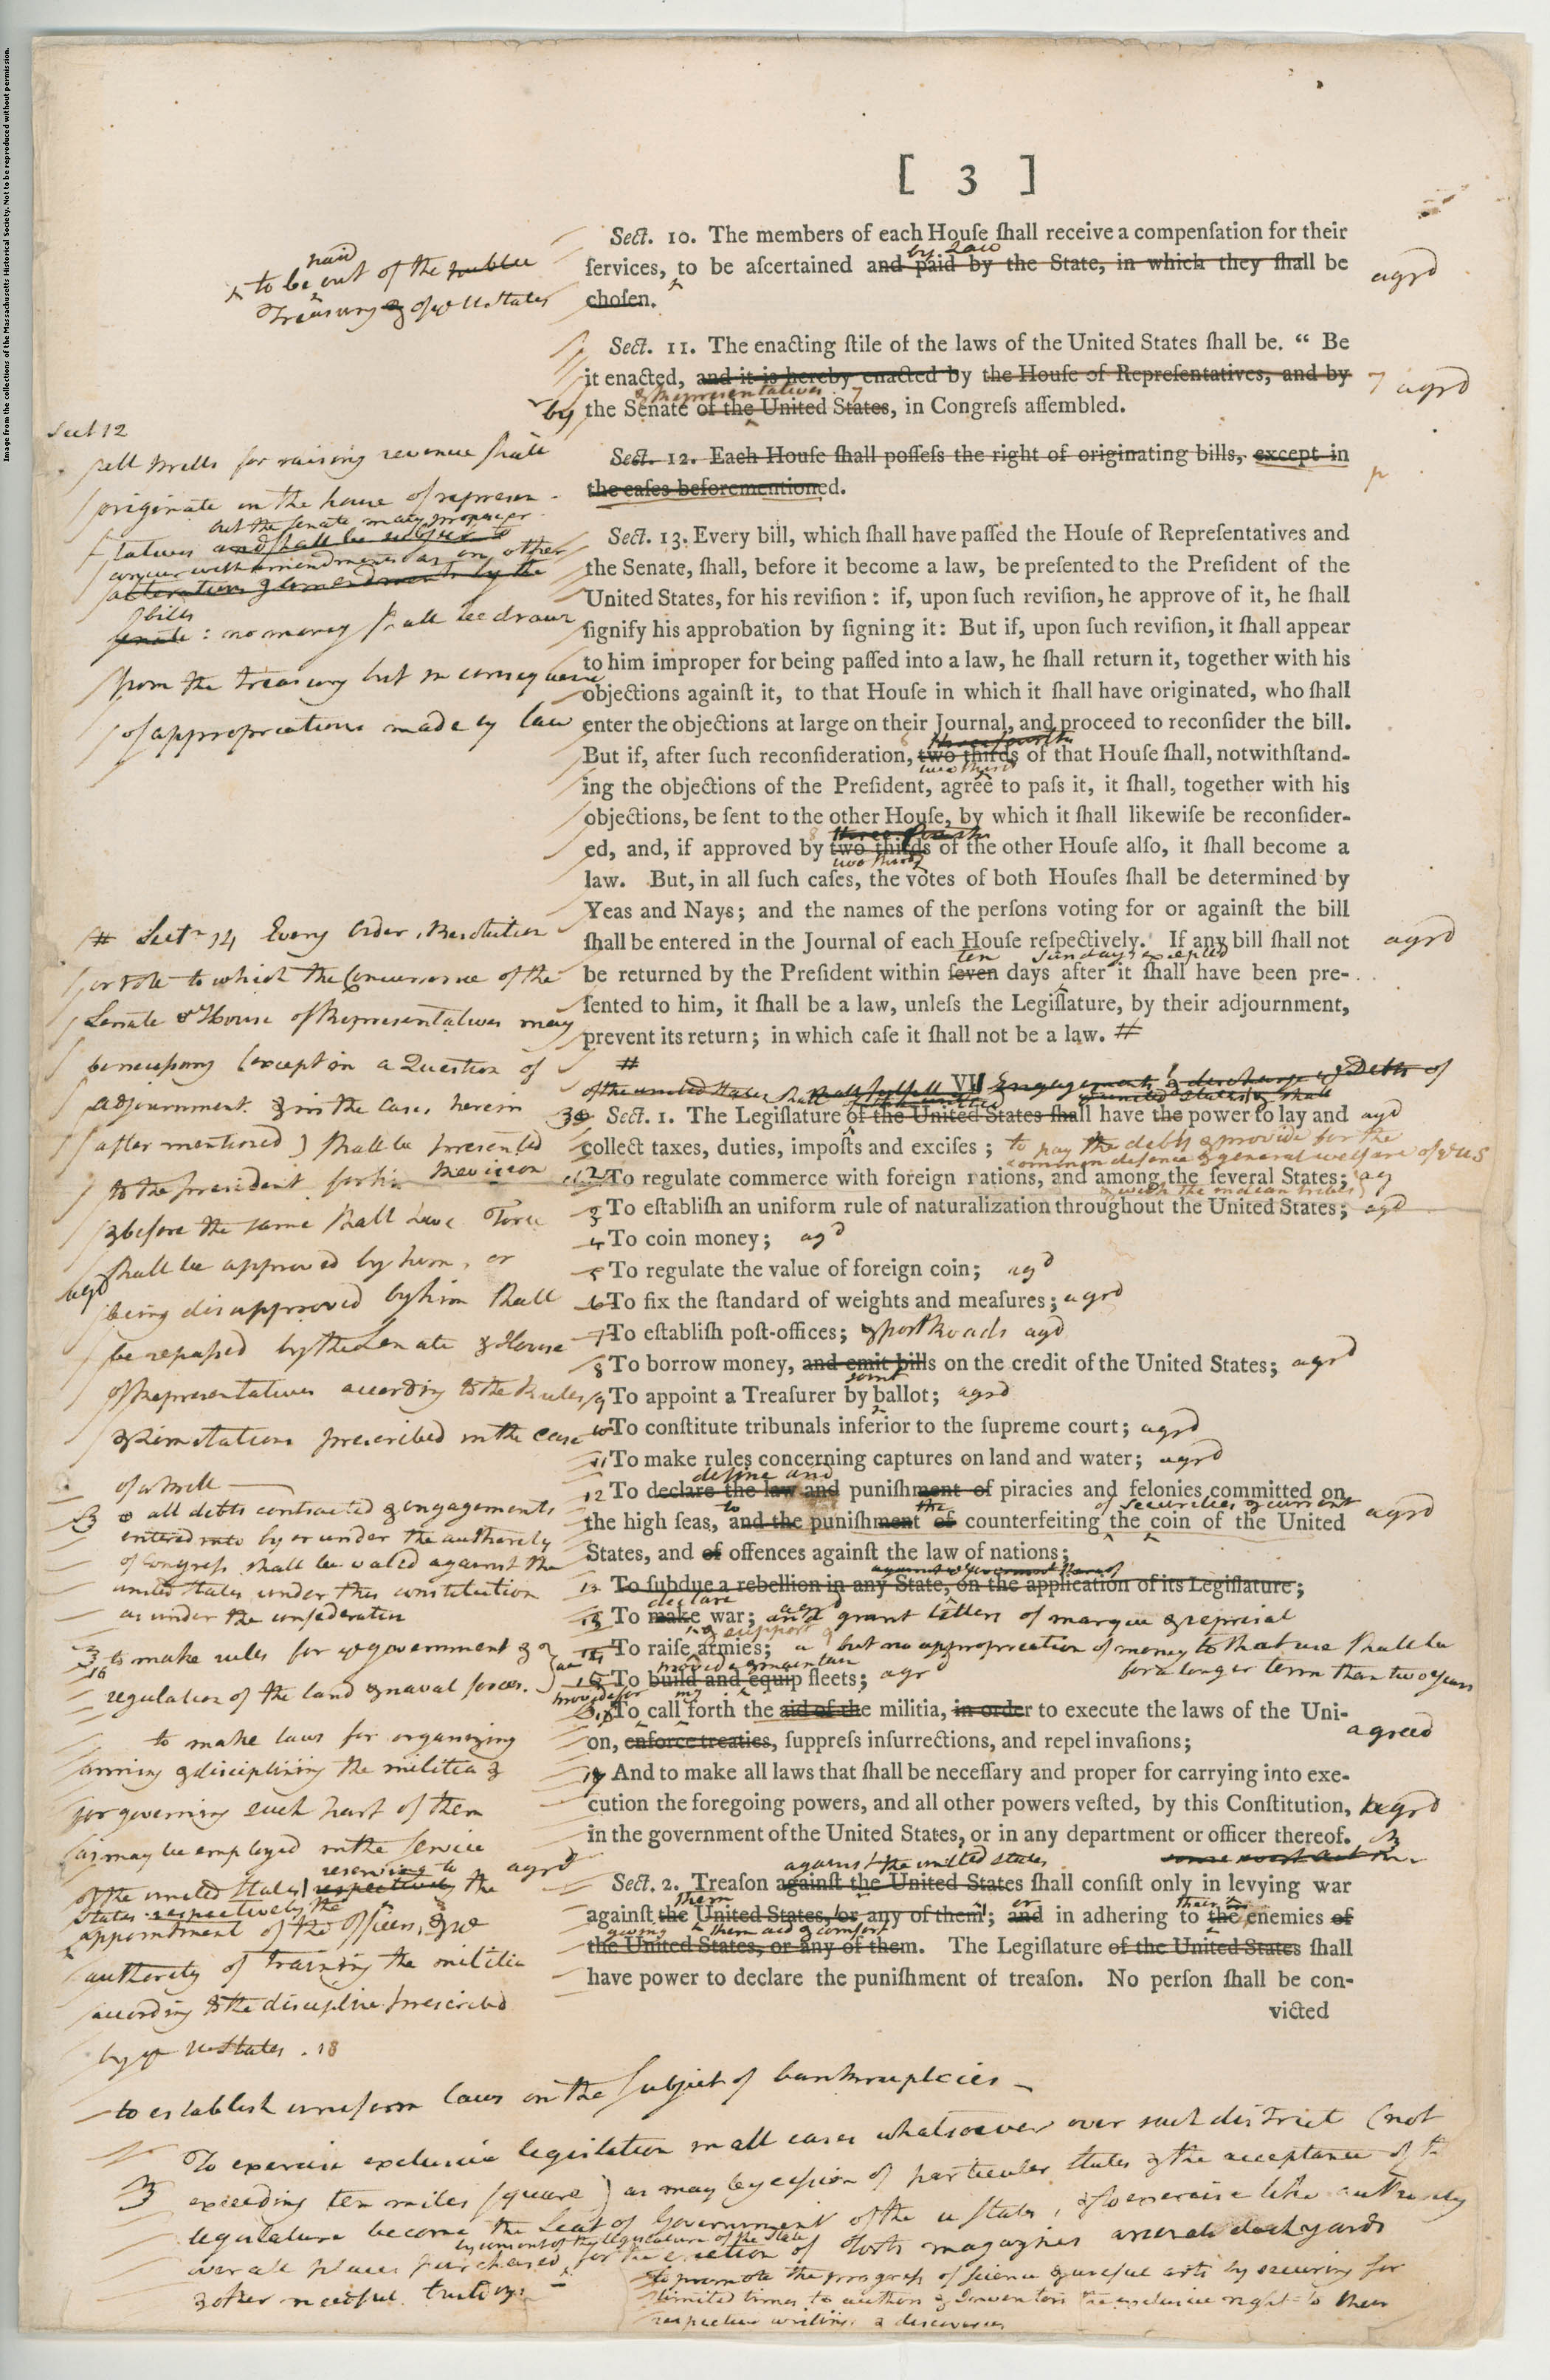 Image from the collections of the Massachusetts Historical Society. Not to be reproduced without permission.
[ 3 ]
Sect. 10. The members of each Houſe ſhall receive a compenſation for their
by Law
ſervices, to be aſcertained and paid by the State, in which they ſhall be
choſen.
agrd
paid
to be out of the publick
Treasury of ye U States
Sect. 11. The enacting ſtile of the laws of the United States ſhall be. “ Be
it enacted, and it is hereby enacted by the Houſe of Repreſentatives, and by
agrd
& Representatives
by the Senate of the United States, in Congreſs aſſembled.
Sect 12
all bills for raising revenue shall
originate in the house of represen-
but the senate may propose or
tatives and shall be subject to
concur with amendments as on other
alterations & amendments by the
bills
senate : no money shall be drawn
from the treasury but in consequence
of appropriations made by law
Sect. 12. Each Houſe ſhall poſſeſs the right of originating bills, except in
the caſes beforementioned.
Sect. 13. Every bill, which ſhall have paſſed the Houſe of Repreſentatives and
the Senate, ſhall, before it become a law, be preſented to the Preſident of the
United States, for his reviſion : if, upon ſuch reviſion, he approve of it, he ſhall
ſignify his approbation by ſigning it: But if, upon ſuch reviſion, it ſhall appear
to him improper for being paſſed into a law, he ſhall return it, together with his
objections againſt it, to that Houſe in which it ſhall have originated, who ſhall
enter the objections at large on their Journal, and proceed to reconſider the bill.
three fourths
But if, after ſuch reconſideration, two thirds of that Houſe ſhall, notwithſtand-
two thirds
ing the objections of the Preſident, agree to paſs it, it ſhall, together with his
objections, be ſent to the other Houſe, by which it ſhall likewiſe be reconſider-
three fourths
ed, and, if approved by two thirds of the other Houſe alſo, it ſhall become a
two thirds
law. But, in all ſuch caſes, the votes of both Houſes ſhall be determined by
Yeas and Nays; and the names of the perſons voting for or againſt the bill
ſhall be entered in the Journal of each Houſe reſpectively. If any bill ſhall not
agrd
ten Sundays excepted
be returned by the Preſident within ſeven days after it ſhall have been pre-
ſented to him, it ſhall be a law, unleſs the Legiſlature, by their adjournment,
prevent its return; in which caſe it ſhall not be a law. #
# Sectn 14 Every Order, Resolution
or vote to which the Concurrence of the
Senate & House of Representatives may
be necessary (except on a Question of
adjournment & in the cases herein
after mentioned ) shall be presented
to the president for his Revision
& before the same shall have Force
shall be approved by him, or
agd
being disapproved by him shall
be repassed by the Senate & House
of Representatives according to the Rules
& Limitations prescribed in the Case
of a Bill
#
VII engagements & discharge ye Debts of
of the united States shall fulfill
Sect. 1. The Legiſlature of the United States ſhall have the power to lay and
agd
collect taxes, duties, impoſts and exciſes ; to pay the debts & provide for the
common defence & general welfare of ye U S
2 To regulate commerce with foreign nations, and among the ſeveral States; ag
& with the indian tribes
3 To eſtabliſh an uniform rule of naturalization throughout the United States; agd
4 To coin money; agd
5 To regulate the value of foreign coin; agd
6 To fix the ſtandard of weights and meaſures; agrd
7 To eſtabliſh poſt-offices; & post Roads agd
8 To borrow money, and emit bills on the credit of the United States; agrd
joint
9 To appoint a Treaſurer by ballot; agrd
10 To conſtitute tribunals inferior to the ſupreme court; agrd
11 To make rules concerning captures on land and water; agrd
define and
12 To declare the law and puniſhment of piracies and felonies committed on
to the of securities & current
the high ſeas, and the puniſhment of counterfeiting the coin of the United
agrd
States, and of offences againſt the law of nations;
To ſubdue a rebellion in any State, on the application of its Legiſlature ;
declare
13 To make war; and grant letters of marque & reprisal
& support
14 To raiſe armies; but no appropriation of money to that use shall be
for a longer term than two years
provide & maintain
15 To build and equip fleets; agrd
provide for ing
To call forth the aid of the militia, in order to execute the laws of the Uni-
agreed
on, enforce treaties, ſuppreſs inſurrections, and repel invaſions;
19 And to make all laws that ſhall be neceſſary and proper for carrying into exe-
cution the foregoing powers, and all other powers veſted, by this Conſtitution,
agrd
in the government of the United States, or in any department or officer thereof.
all debts contracted & engagements
entered into by or under the authority
of Congress shall be valid against the
united states under this constitution
as under the confederation
16 to make rules for ye government &
regulation of the land & naval forces.
to make laws for organizing
arming & disciplining the militia &
for governing such part of them
as may be employed in the service
reserving to
of the united States respectively the
agrd
states respectively the
appointment of the Officers, & ye
authority of training the militia
according to the discipline prescribed
by ye U States . 18
against the united states
Sect. 2. Treaſon againſt the United States ſhall conſiſt only in levying war
them or their
againſt the United States, or any of them; and in adhering to the enemies of
giving them aid & comfort
the United States, or any of them. The Legiſlature of the United States ſhall
have power to declare the puniſhment of treaſon. No perſon ſhall be con-
victed
to establish uniform laws on the subject of bankruptcies
To exercise exclusive legislation in all cases whatsoever over such district (not
exceeding ten miles square ) as may by cession of particular states & the acceptance of the
legislature become the Seat of Government of the u States, & to exercise like authority
by consent of the legislature of the State
over all places purchased for the erection of Forts magazines arsenals dock yards
& other needful buildings
to promote the progress of science & useful arts by securing for
limited times to authors & Inventors the exclusive right to their
respective writings & discoveries